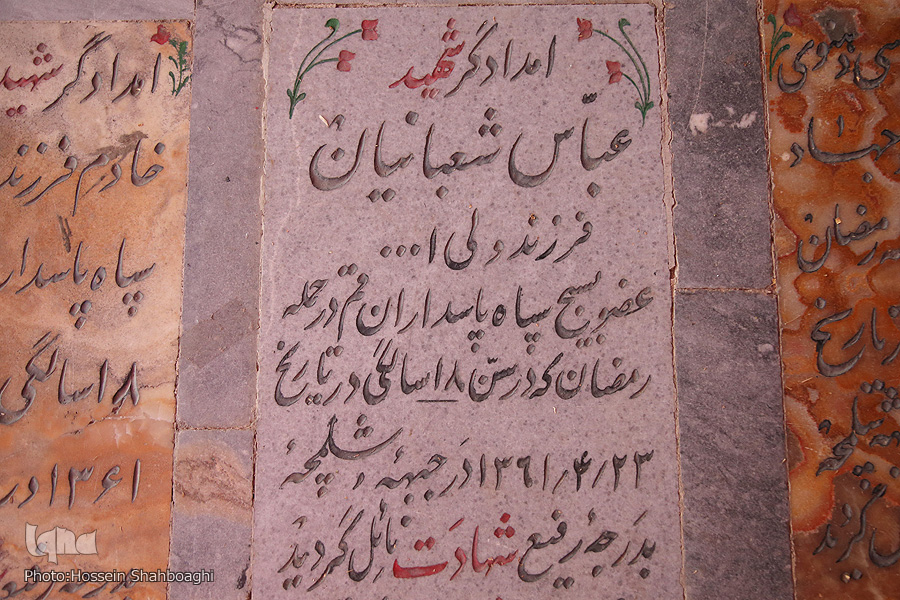 امدادگر شهید
عبّاس شعبانیان
فرزند ولی ا...
عضو بسیج سپاه پاسداران قم در حمله
رمضان که در سنّ ۱۸ سالگی در تاریخ
۱۳۶۱/۴/۲۳ در جبههٔ شلمچهٔ
بدرجهٔ رفیع شهادت نائل گردید
امدادگر شهید
خادم فرزند
سپاه پاسدار
۱۸ سالگی
۱۳۶۱ در
جهاد
رمضان
تاریخ
شلمچهٔ
Iqna
Photo:Hossein Shahboaghi